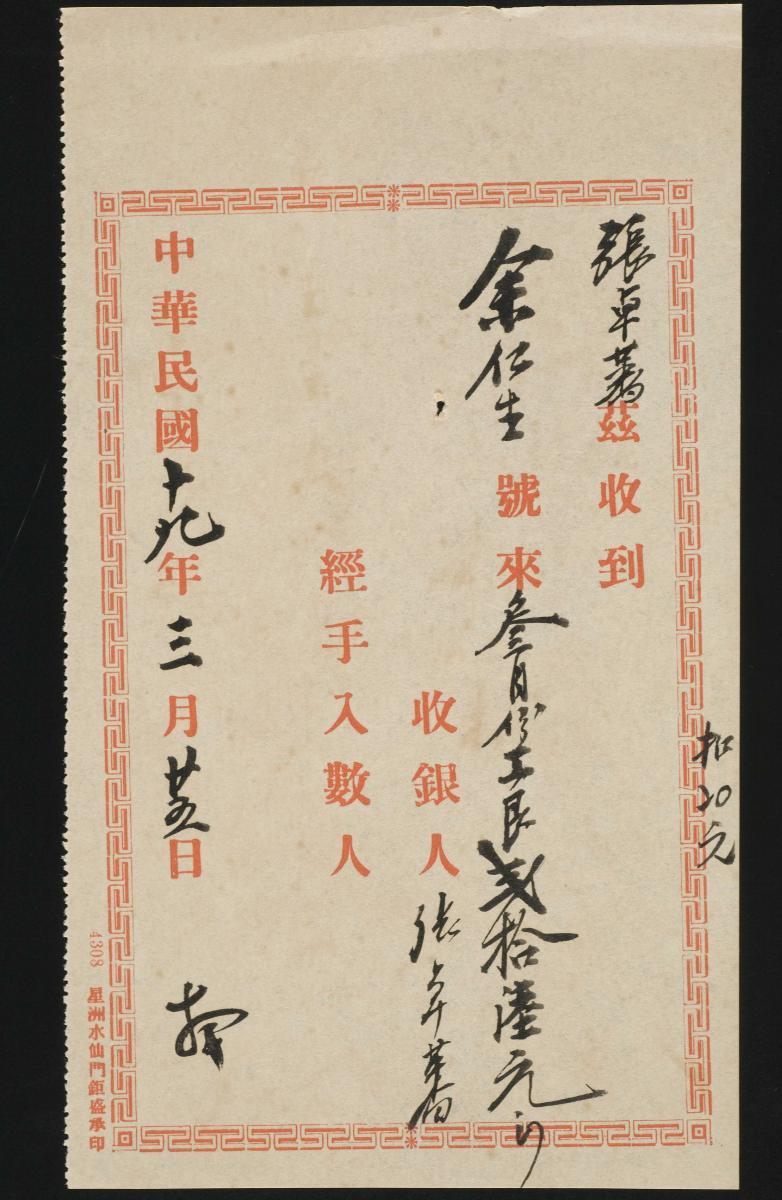 扣20元
張卓蕃茲收到
余仁生號來叁月份工艮弍拾陸元
收銀人張卓蕃
經手入數人
中華民國十九年三月廿五日
4308 星洲水仙門鉅盛承印